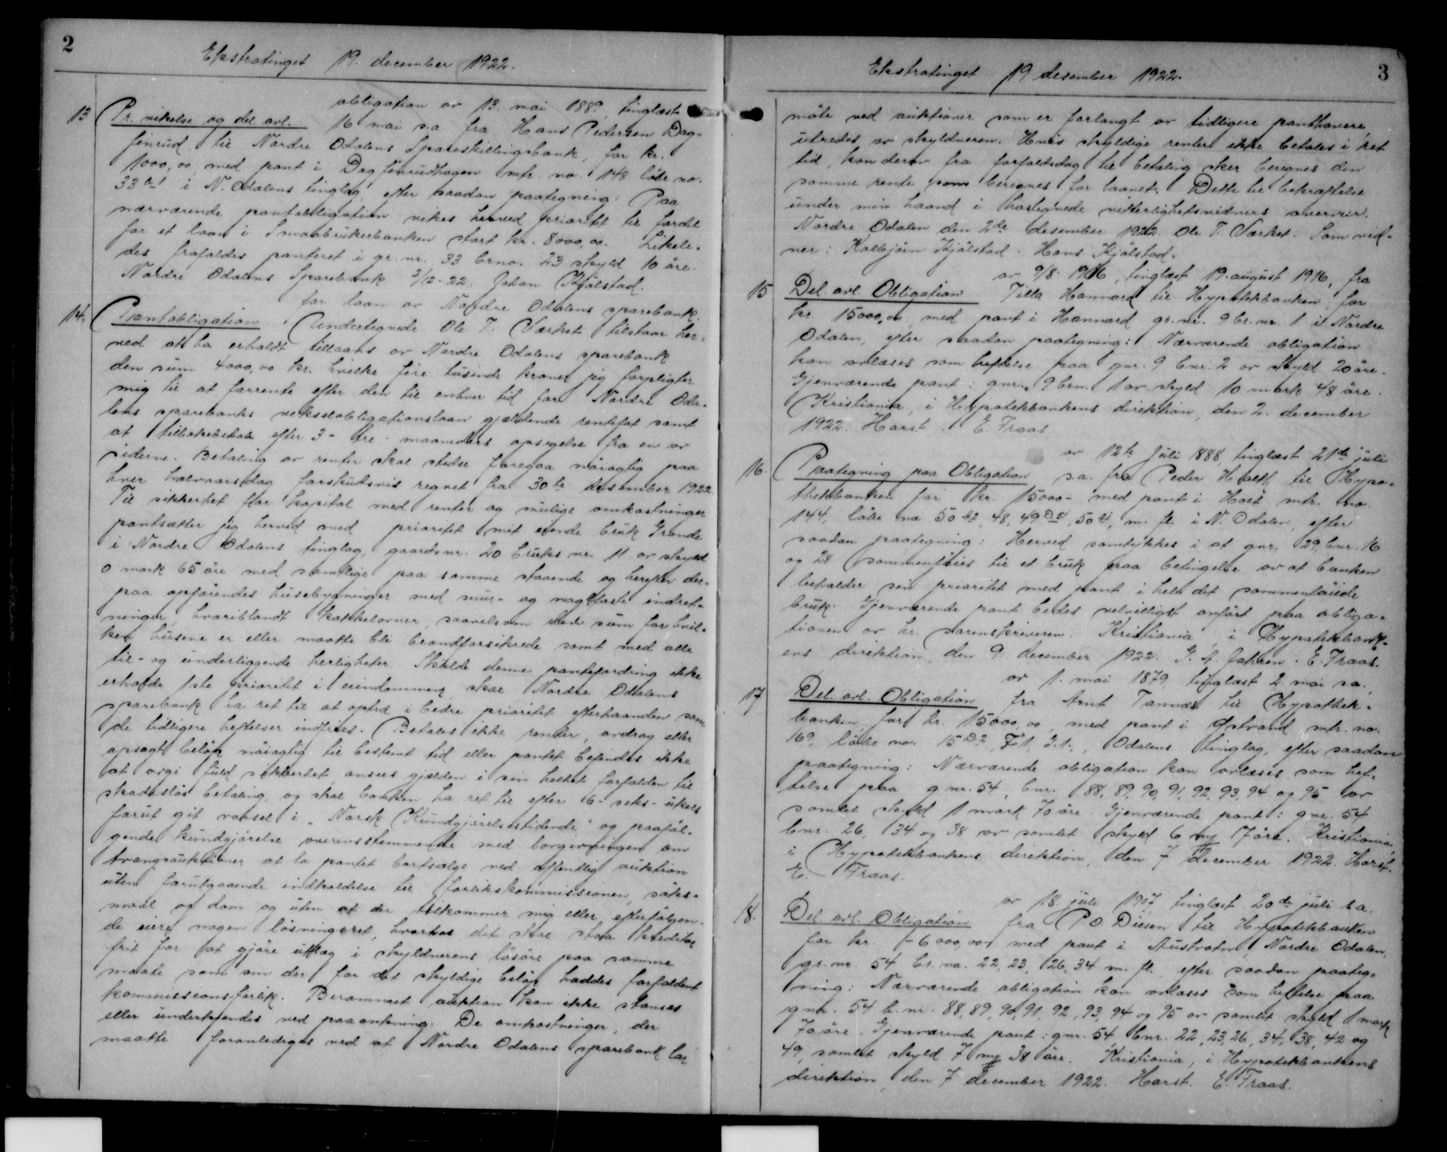 2
Ekstratinget 19. december 1922.
13
Pr. vikelse og del avl.
obligation av 13. mai 1889, tinglæst
16 mai s.a. fra Hans Pedersen Dag-
finrud til Nordre Odalens Spareskillingsbank, for kr.
1000,00 med pant i Dagfinrudhagen mtr. no. 148 løbe no.
i N. Odalens tinglag, efter saadan paategning: Paa
nærværende pantobligation vikes herved prioritet til fordel
for et laan i Smaabrukerbanken stort kr. 8000,00. Likele-
des frafaldes panteret i gr. nr. 33 brno. 23 skyld 10 øre.
Nordre Odalens Sparebank 2/12-22. Johan Kjølstad.
14.
Pantobligation
for laan av Nordre Odalens sparebank.
Undertegnede Ole T. Særket tilstaar her-
ved at ha erholdt tillaans av Nordre Odalens sparebank
den sum 4000,00 kr. hvilke fire tusinde kroner jeg forpligter
mig til at forrente efter den til enhver tid for Nordre Oda-
lens sparebanks vekselobligationslaan gjældende rentefot samt
at tilbakebetale efter 3- tre- maaneders opsigelse fra en av
siderne. Betaling av renter skal stedse foregaa nøiagtig paa
hver halvaarsdag forskudsvis regnet fra 30te desember 1922
Til sikkerhet for kapital med renter og mulige omkostninger
pantsætter jeg herved med prioritet mit eiende bruk Grande
i Nordre Odalens tinglag, gaardsnr. 20 bruks nr. 11 av skyld
0 mark 65 øre med samtlige paa samme staaende og herefter der-
paa opførendes husebygninger med mur- og nagelfaste indret-
ninger, hvoriblandt kakkelovner, saavelsom den sum for hvil-
ken husene er eller maatte bli brandforsikrede samt med alle
til- og underliggende herligheter. Skulde denne pantefordring ikke
erholde 1ste prioritet i eiendommen, skal Nordre Odalens
sparebank ha ret til at optræ i bedre prioritet efterhaanden som
de tidligere heftelser indfries. Betales ikke renter, avdrag eller
opsagt beløp nøiagtig til bestemt tid eller pantet befindes ikke
at avgi fuld sikkerhet ansees gjælden i sin helhet forfalden til
skadesløs betaling, og skal banken ha ret til efter 6- seks- ukers
forut git varsel i „Norsk Kundgjørelsestidende" og paaføl-
gende kundgjørelse overensstemmende med lovgivningen om
tvangsauktioner at la pantet bortsælge ved offentlig auktion
uten forutgaaende indkaldelse til forlikskommissionen, søks-
maal og dom og uten at der tilkommer mig eller efterfølgen-
de eiere nogen løsningsret, hvorhos det skal staa kreditor
frit for at gjøre utlæg i skyldnerens løsøre paa samme
maate som om der for det skyldige beløp haddes forfaldent
kommissionsforlik. Berammet auktion kan ikke stanses
eller underkjendes ved paaankning. De omkostninger, der
maatte foranlediges ved at Nordre Odalens sparebank lar
3
Ekstratinget 19 desember 1922.
møte ved auktioner som er forlangt av tidligere panthavere,
utredes av skyldneren. Hvis skyldige renter ikke betales i ret
tid, kan derav fra forfaldsdag til betaling sker beregnes den
samme rente som beregnes for laanet. Dette til bekræftelse
under min haand i hostegnede vitterlighetsvidners overvær.
Nordre Odalen den 2de desember 1922. Ole T. Særket. Som vid-
ner: Kolbjørn Kjølstad. Hans Kjølstad.
15
Del. avl. Obligation
av 9/8-1916, tinglæst 19. august 1916, fra
Tilla Hannord til Hypotekbanken, for
kr. 15000,00, med pant i Hannord gr. nr. 9 br. nr. 1 i Nordre
Odalen, efter saadan paategning: Nærværende obligation
kan avlæses som heftelse paa gnr. 9 bnr. 2 av skyld 20 øre.
Gjenværende pant: gnr. 9 brn. 1 av skyld 10 mark 48 øre.
Kristiania, i Hypotekbankens direktion, den 2. december
1922. Harst. E. Traas.
16.
Paategning paa Obligation
av 12te juli 1888 tinglæst 21de juli
s.a. fra Peder Holt til Hypo-
thekbanken for kr. 15000- med pant i Holt mtr. no.
144, løbe no 50 48, 49, 50, m. fl. i N. Odalen, efter
saadan paategning: Herved samtykkes i at gnr. 29, bnr. 16
og 28 sammenføies til et bruk paa betingelse av at banken
beholder sin prioritet med pant i hele det sammenføiede
bruk. Gjenværende pant bedes velvilligst anført paa obliga-
tionen av hr. sorenskriveren. Kristiania, i Hypotekbank-
ens direktion, den 9. december 1922. E. Traas.
17
Del. avl. Obligation
av 1. mai 1879, tinglæst 2. mai s.a.,
fra Arnt Tannæs til Hypothek-
banken for kr. 15000,00, med pant i mtr. no.
169, løbe no. Odalens tinglag, efter saadan
paategning: Nærværende obligation kan avlæses som hef-
telse paa gnr. 54, bnr. 88, 89, 90, 91, 92, 93, 94 og 95 av
samlet skyld 1 mark 70 øre. Gjenværende pant: gnr. 54
bnr. 26, 34 og 38 av samlet skyld 6 my 17 øre. Kristiania,
i Hypotekbankens direktion, den 7 december 1922. Harst.
E. Traas.
18.
Del. avl. Obligation
av 18. juli 1907 tinglæst 20de juli s.a.
fra P. O. Diesen til Hypotekbanken
for kr. 6000,00 med pant i Austvatn, Nordre Odalen,
gr. nr. 54 br. no. 22, 23, 26, 34 m. fl., efter saadan paateg-
ning: Nærværende obligation kan avlæses som heftelse paa
gnr. 54 b. nr. 88, 89, 90, 91, 92, 93, 94 og 95 av samlet skyld 1 mark
70 øre. Gjenværende pant: gnr. 54 bnr. 22, 23, 26, 34, 38, 42 og
49, samlet skyld 7 my 38 øre. Kristiania, i Hypotekbankens
direktion, den 7 december 1922. Harst. E. Traas.